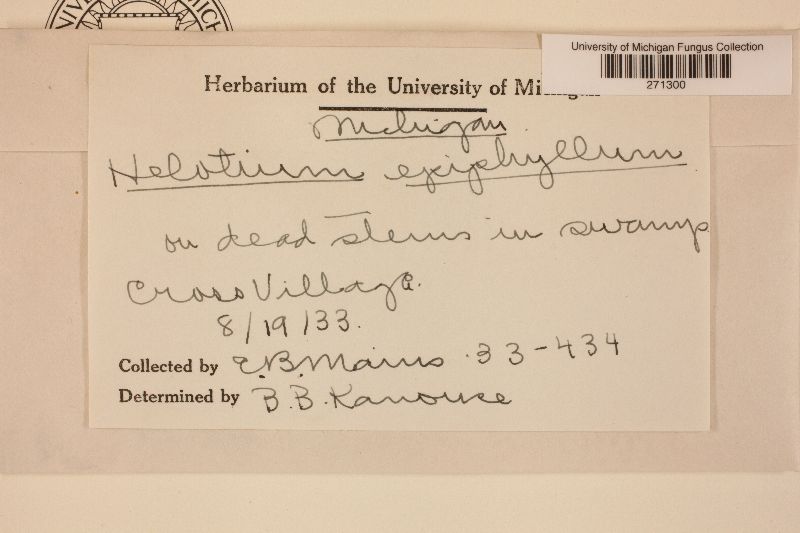 University of Michigan Fungus Collection
271300
Herbarium of the University of
Michigan
Helotium epiphyllum
on dead stems in swamp
Cross Village.
8/19/33.
Collected by E.B. Mains 33-434
Determined by B.B. Kanouse